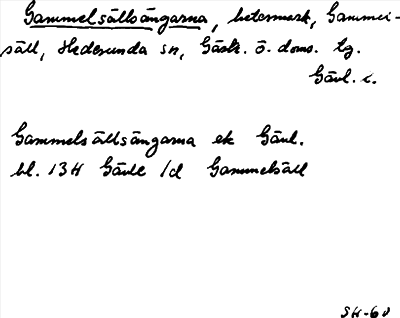 Gammelsällsängarna, betesmark, Gammel-
säll, Hedesunda sn, Gästr. ö. doms. tg.
Gävl. l.
Gammelsällsängarna ek Gävl.
bl. 13H Gävle 1d Gammelsäll
SH-60